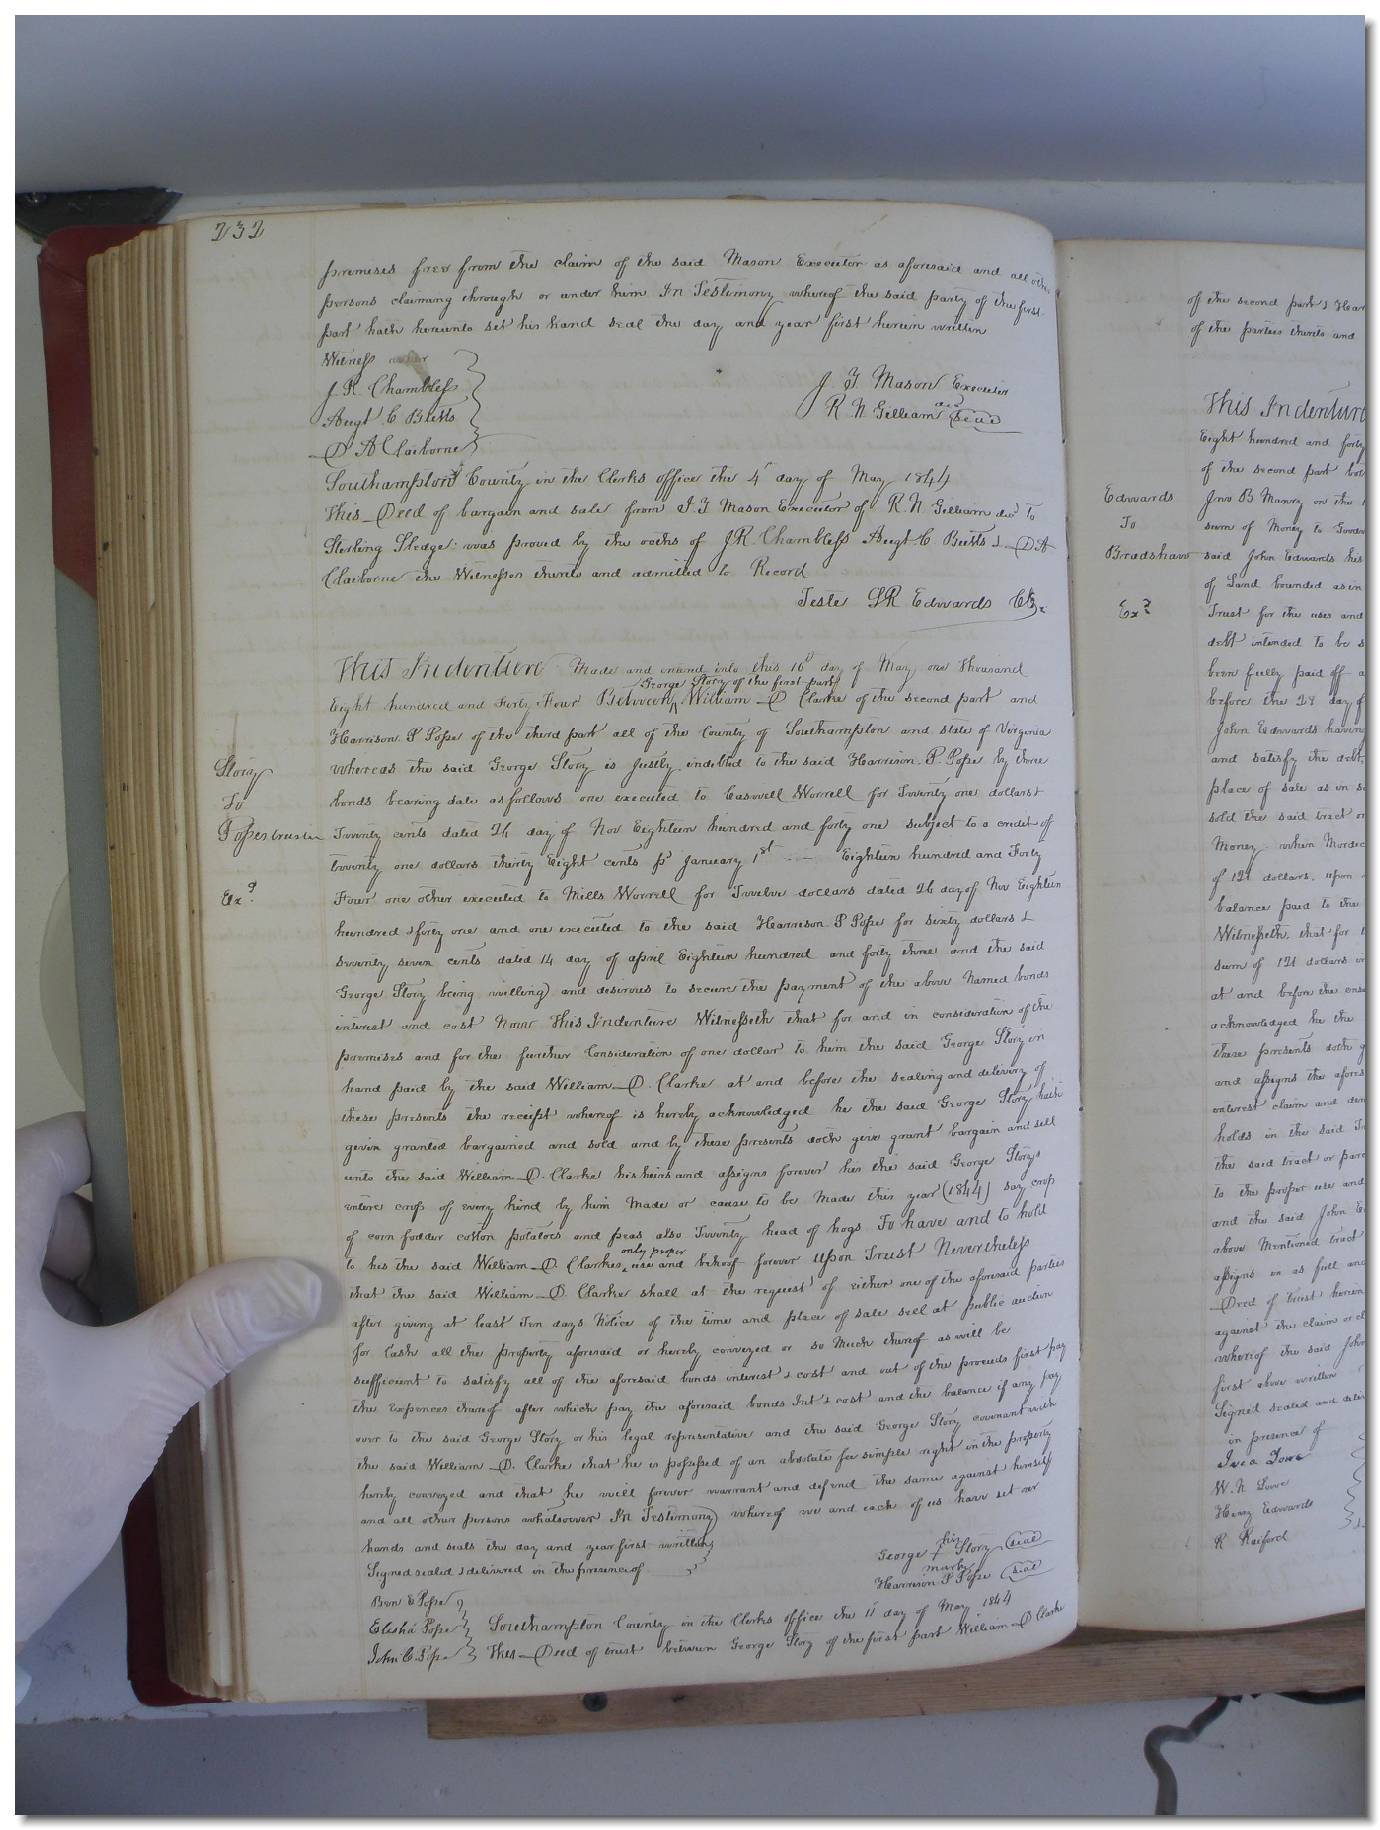 232
premises free from the claim of the said Mason Executor as aforesaid and all other
persons claiming through or under him In Testimony whereof the said party of the first
part hath hereunto set his hand seal the day and year first herein written
Witness
J. R. Chambless
Augt C Butts
D A Claiborne
J Y Mason Executor
R. N Gilliam decd Seal
Southampton County in the Clerks office the 4 day of May 1844
This Deed of bargain and sale from J. Y Mason Executor of R. N Gilliam decd to
Sterling Sledge was proved by the oaths of J R. Chambless Augt C. Butts & D A
Claiborne the Witnesses thereto and admitted to Record
Teste L R Edwards Clk
This Indenture Made and entered into this 10th day of May one thousand
George Story of the first part
Eight hundred and Forty Four Between ^ William D Clarke of the second part and
Harrison P Pope of the third part all of the County of Southampton and state of Virginia
Whereas the said George Story is justly indebted to the said Harrison. P. Pope by three
bonds bearing date as follows one executed to Caswell Worrell for Twenty one dollars &
Twenty cents dated 24 day of Nov Eighteen hundred and forty one subject to a credit of
twenty one dollars thirty Eight cents pr January 1st Eighteen hundred and Forty
Four one other executed to Mills Worrell for Twelve dollars dated 26 day of Nov Eighteen
hundred & forty one and one executed to the said Harrison P Pope for sixty dollars &
seventy seven cents dated 14 day of april Eighteen hundred and forty three and the said
George Story being willing and desirous to secure the payment of the above Named bonds
interest and cost Now This Indenture Witnesseth that for and in consideration of the
premises and for the further Consideration of one dollar to him the said George Story in
hand paid by the said William D. Clarke at and before the sealing and delivery of
these presents the receipt whereof is hereby acknowledged he the said George Story hath
given granted bargained and sold and by these presents doth give grant bargain and sell
unto the said William D. Clarke his heirs and assigns forever his the said George Storys
entire crop of every kind by him Made or cause to be Made this year (1844) say crop
of corn fodder cotton potatoes and peas also Twenty head of hogs To have and to hold
only proper
to his the said William D. Clarkes ^ use and behoof forever Upon Trust Nevertheless
that the said William D. Clarke shall at the request of either one of the aforesaid parties
after giving at least Ten days Notice of the time and place of sale sell at public auction
for Cash all the property aforesaid or hereby conveyed or so Much thereof as will be
sufficient to satisfy all of the aforesaid bonds interest & cost and out of the proceeds first pay
the Expences thereof after which pay the aforesaid bonds Int & cost and the balance if any pay
over to the said George Story or his legal representative and the said George Story covenant with
the said William D. Clarke that he is possessed of an absolute fee simple right in the property
hereby conveyed and that he will forever warrant and defend the same against himself
and all other persons whatsoever In Testimony whereof we and each of us have set our
hands and seals the day and year first written
Signed sealed & delivered in the presence of
Ben E Pope
Elisha Pope
John C. Pope
his
George + Story seal
mark
Harrison P Pope seal
Southampton County in the Clerks office the 11 day of May 1844
This Deed of trust between George Story of the first part William D Clarke
Story
To
Popes trustee
Exd
of the second part & Har
of the parties thereto and
This Indenture
Eight hundred and forty
of the second part
Jno B Manry on the
sum of Money to
said John Edwards his
of Land bounded as in
Trust for the uses and
debt intended to be s
been fully paid off a
before the 28 day of
John Edwards having
and satisfy the debt
place of sale as in s
sold the said tract or
Money when
of 121 dollars. upon
balance paid to the
Witnesseth, that for
sum of 121 dollars
at and before the ense
acknowledged he the
these presents doth g
and assigns the afores
interest claim and dem
holds in the said
the said tract or parc
to the proper use and
and the said John E
above Mentioned tract
assigns in as full and
Deed of trust herein
against the claim or
whereof the said John
first above written
Signed sealed and deliv
in presence of
W. N Lowe
Henry Edwards
R Raiford
Edwards
To
Bradshaw
Exd